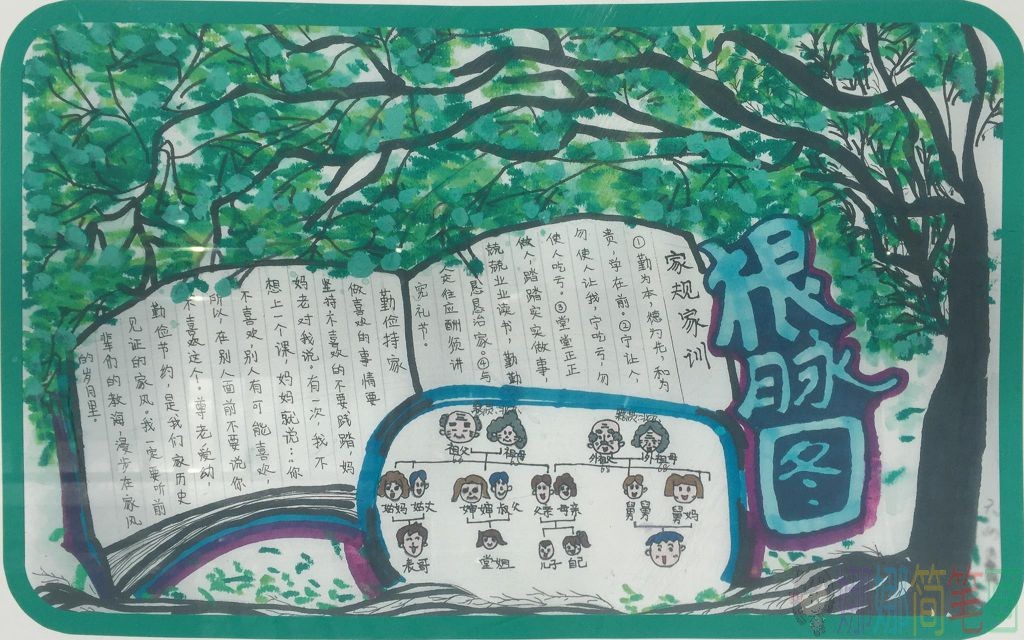 根脉图
家规家训
①勤为本,德为先,和为
贵,学在前。②宁让人,
勿使人让我,宁吃亏,勿
使人吃亏,③堂堂正正
做人,踏踏实实做事,
兢兢业业读书,勤勤
恳恳治家。④与
应酬须讲
究礼节。
勤俭持家
做喜欢的事情要
坚持不喜欢的不要践踏,妈
妈老对我说。有一次,我不
想上一个课,妈妈就说:…你
不喜欢别人有可能喜欢,
所以,在别人面前不要说你
不喜欢这个。尊老爱幼
勤俭节约,是我们家历史
见证的家风。我一定要听前
辈们的教诲,漫步在家风
的岁月里。
祖父 祖母 外祖父 外祖母
姑妈 姑丈 婶婶 叔父 父亲 母亲 舅舅 舅妈
表哥 堂姐 自己
娜娜简笔画